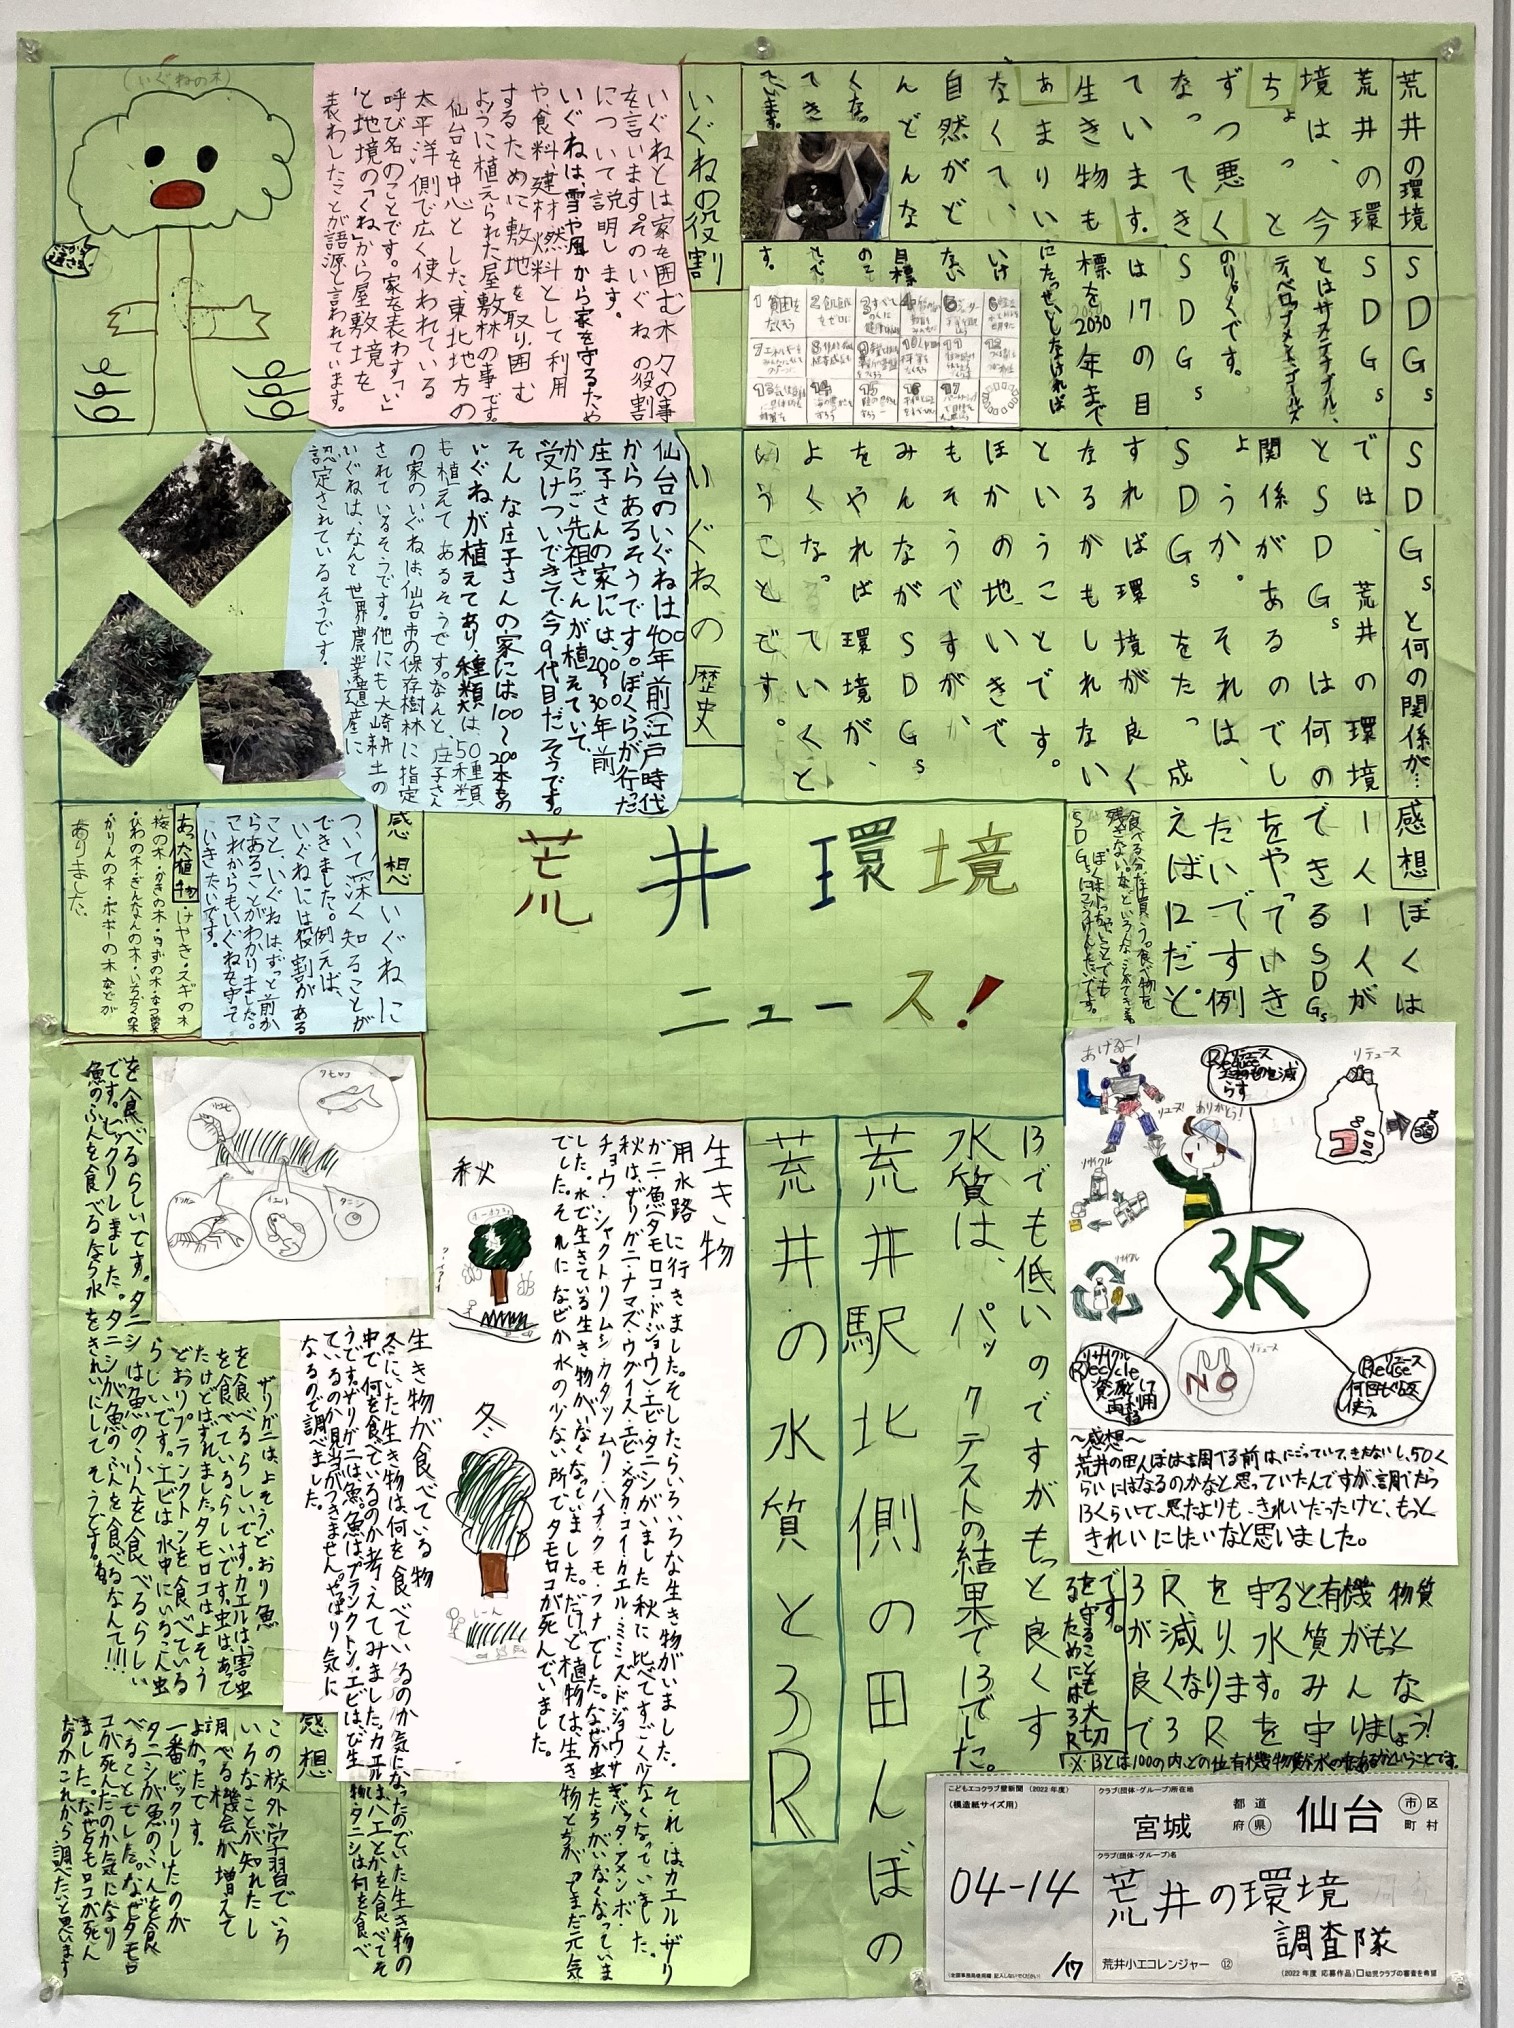 荒井環境
ニュース!
荒井の環境
荒井の環
境は、今
ちょっと
ずつ悪く
なってき
ています。
生き物も
あまりい
なくてい
自然がど
んどんな
くなっ
てき
ています。
SDGs
SDGs
とはサスティナブル、
ディベロップメント、ゴールズ
のりゃくです。
SDGs
は17の目
標を2030年まで
にたっせいしなければ
いけ
ない
目標
のこと
です。
SDGsと何の関係が…
では、荒井の環境
とSDGsは何の
関係があるのでし
ょうか。それは、
SDGsをたっ成
すれば環境が良く
なるかもしれない
ということです。
ほかの地いきで
もそうですが、
みんながSDGs
をやれば環境が、
よくなっていくと
いうことです。
感想
ぼくは
一人一人が
できるSDGs
をやっていき
たいです例
えば12だと
食べる分だけ買う。食べ物を
残さない。などといろんな
いぐねの役割
いぐねとは家を囲む木々の事
を言います。そのいぐねの役割
について説明します。
いぐねは、雪や風から家を守るため
や、食料、建材、燃料として利用
するために敷地を取り囲む
ように植えられた屋敷林の事です。
仙台を中心とした東北地方の
太平洋側で広く使われている
呼び名のことです。家を表わす「い」
と地境の「くね」から屋敷境を
表わしたことが語源と言われています。
(いぐねの木)
いぐねの歴史
仙台のいぐねは400年前(江戸時代)
からあるそうです。ぼくらが行った
庄子さんの家には、200~300年前
からご先祖さんが植えていて、
受けついできて今9代目だそうです。
そんな庄子さんの家には100~200本もの
いぐねが植えてあり、種類は、50種類
も植えてあるそうです。なんと、庄子さん
の家のいぐねは仙台市の保存樹林に指定
されているそうです。他にも大崎耕土の
いぐねは、なんと世界農業遺産に
認定されているそうです。
感想
いぐねに
ついて深く知ることが
できました。例えば、
いぐねには役割がある
こと、いぐねは、ずっと前か
らあることがわかりました。
これからもいぐねを守って
いきたいです。
あった植物
・けやき・スギの木
・桜の木・かきの木・ゆずの木・なつ葉
・びわの木・ぎんなんの木・いちぢくの木
・かりんの木・ポポーの木などが
ありました。
荒井の水質と3R
荒井駅北側の田んぼの
水質は、パックテストの結果で13でした。
13でも低いのですがもっと良くす
るためには3R
を守ることも大切
です。
3Rを守ると有機物質
が減り、水質がもっと
良くなります。みんな
で3Rを守りましょう!
3R
あげるー!
リユーズ!
ありがとう!
リデュース
リサイクル
リサイクル
NO
Reuse
何回もくり返し
使う。
リサイクル
Recycle
~感想~
荒井の田んぼは調べる前は、にごっていて、きたないし、50く
らいにはなるのかなと思っていたんですが、調べたら
13くらいで、思ったよりも、きれいだったけど、もっと
きれいにしたいなと思いました。
生き物
用水路に行きました。そしたらいろいろな生き物がいました。それは、カエル・ザリ
ガニ・魚(タモロコ・ドジョウ)エビ・タニシがいました秋に比べてすごく少なくなっていました。
秋は、ザリガニ・ナマズ・ウグイス・エビ・メダカ・コイ・カエル・ミミズ・ドジョウ・サギ・バッタ・アメンボ・
チョウ・シャクトリムシ・カタツムリ・ハチ・クモ・フナでした。なぜか虫たちがいなくなっていま
した。水で生きている生き物がいなくなっていました。だけど植物は、生き物とちがってまだ元気
でした。それになぜか水の少ない所でタモロコが死んでいました。
秋
冬
しーん
生き物が食べている物
冬にいた生き物は何を食べているのか気になったのでいた生き物の
中で、何を食べているのか考えてみました。カエルは、ハエとかを食べてそ
うです。ザリガニは魚。魚は、プランクトン、エビは、び生物、タニシは何を食べ
ているのか見当がつきません。やはり気に
なるので調べました。
ザリガニは、よそうどおり魚
を食べるらしいです。カエルは、害虫
を食べているらしいです。虫はあって
たけどはずれました。タモロコはよそう
どおりプランクトンを食べている
らしいです。エビは水中にいるこん虫
を食べるらしいです。タニシは魚のふんを食べるらしい
です。ビックリしました。タニシが魚のふんを食べるなんて!!!
魚のふんを食べるなら水をきれいにしてそうです。
タモロコ
エビ
カエル
タニシ
感想
この校外学習でいろ
いろなことが知れたし
調べる機会が増えて
よかったです。
一番ビックリしたのが
タニシが魚のふんを食
べることでした。なぜタモロ
コが死んだのか気になり
ました。なぜタモロコが死ん
だのかこれから調べたいと思います
こどもエコクラブ壁新聞 (2022年度)
(模造紙サイズ用)
04-14
/17
(全国事務局使用欄 記入しないでください)
クラブ(団体・グループ)所在地
宮城 都道府県 仙台 市区町村
クラブ(団体・グループ)名
荒井の環境
調査隊
荒井小エコレンジャー ⑫
(2022年度 応募作品) □幼児クラブの審査を希望